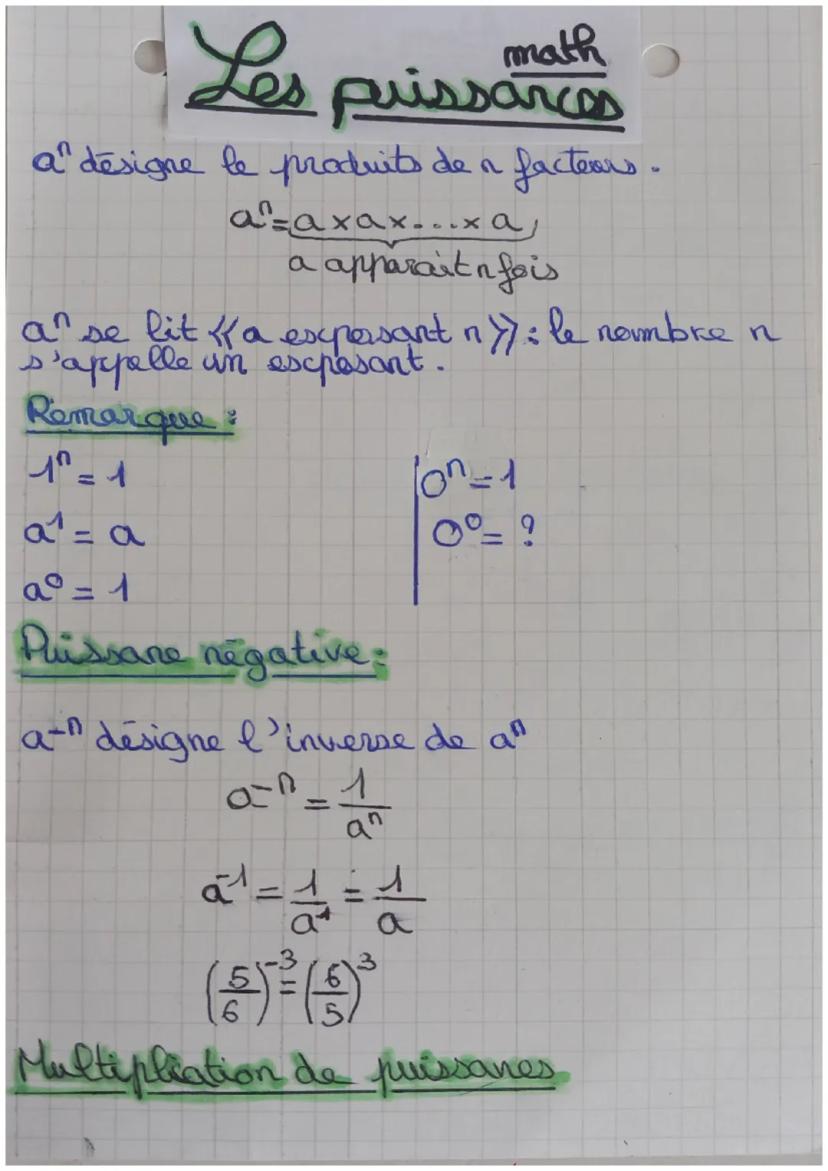 math
Les puissances
aⁿ désigne le produits de n facteurs.
aⁿ = a × a × ... × a,
a apparaît n fois
aⁿ se lit « a exposant n » : le nombre n
s'appelle un exposant.
Remarque :
1ⁿ = 1
a¹ = a
a⁰ = 1
0ⁿ = 1
0⁰ = ?
Puissane négative :
a⁻ⁿ désigne l'inverse de aⁿ
a⁻ⁿ = 1/aⁿ
a⁻¹ = 1/a¹ = 1/a
(5/6)⁻³ = (6/5)³
Multipliation de puissanes